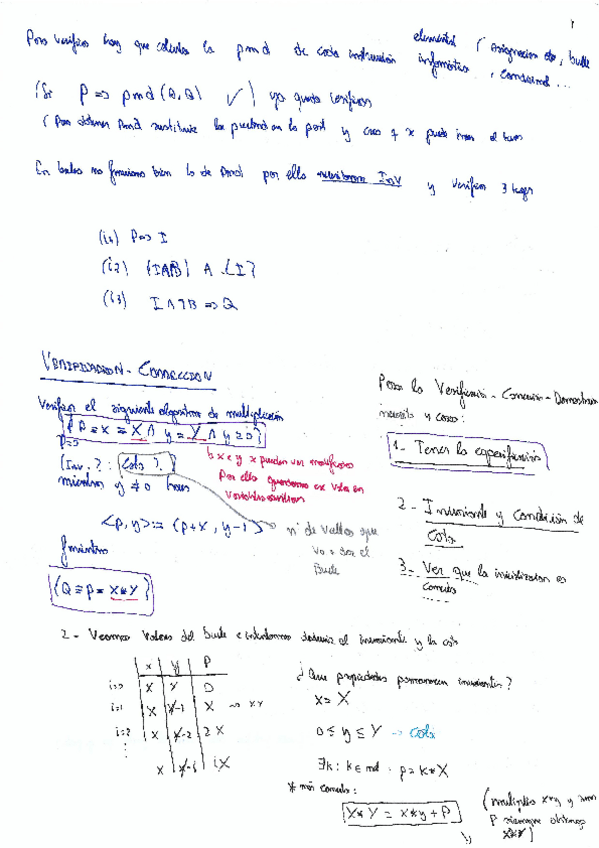 Para verificar hay que calcular la pmd de cada instrucción elemental (Asignación, bucle
informático, condicional...
(Si P => pmd(Q,Q) ✓) ya queda verificar
(Para obtener pmd sustituir la en la post y x puede
En bucles no funciona bien lo de pmd por ello necesitamos Inv y verificar 3
(i1) P => I
(i2) {I∧B} A {I}
(i3) I∧¬B => Q
VERIFICACION - CORRECCION
Verificar el siguiente algoritmo de multiplicación
{P ≡ x = X ∧ y = Y ∧ y ≥ 0}
p:=0
(Inv ? : Cota ?)
mientras y ≠ 0 hacer
<p,y> := (p+x, y-1)
fmientras
{Q ≡ p = X*Y}
x e y pueden ser modificados
Por ello guardamos su valor en
variables auxiliares
nº de vueltas que
va a dar el
Bucle
Para la Verificación - Corrección - Demostración
necesito y como:
1- Tener la especificación
2- Invariante y Condición de
cota
3- Ver que la inicialización es
correcta
2- Veamos Valores del bucle e intentamos deducir el invariante y la cota
x y P
i=0 X Y 0
i=1 X Y-1 X
i=2 X Y-2 2X
⋮
X Y-i iX
¿Que propiedades permanecen invariantes?
x = X
0 ≤ y ≤ Y → cota
∃k: k ∈ nat · p = k*X
* más
X*Y = x*y + P
(multiplico x*y y sumo
P siempre obtengo
X*Y)